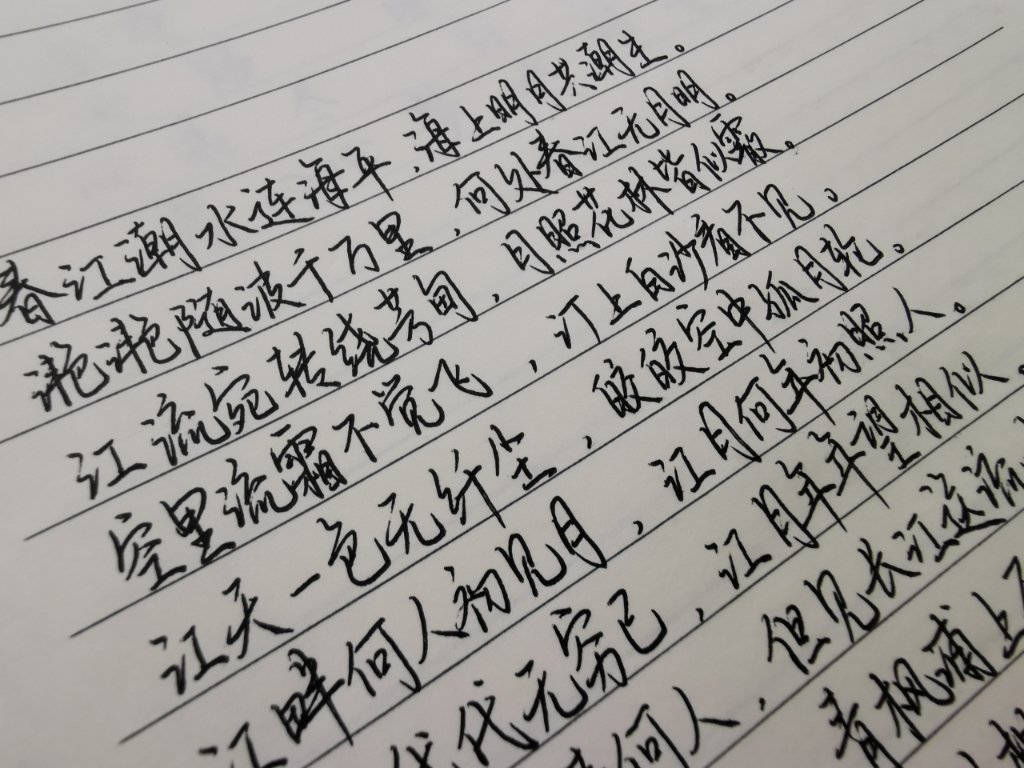 春江潮水连海平,海上明月共潮生。
滟滟随波千万里,何处春江无月明。
江流宛转绕芳甸,月照花林皆似霰。
空里流霜不觉飞,汀上白沙看不见。
江天一色无纤尘,皎皎空中孤月轮。
江畔何人初见月,江月何年初照人。
代代无穷已,江月年年望相似。
何人,但见长江送流
青枫浦上